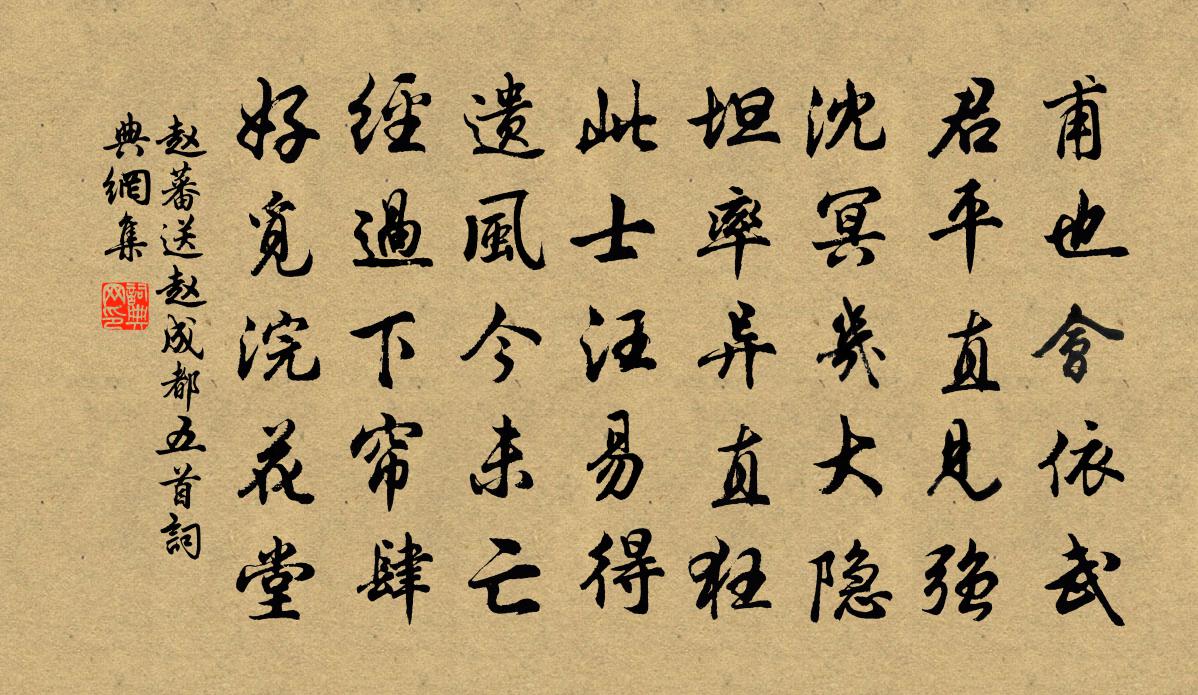 甫也會依武
君平直見强
沈冥㡬大隐
坦率异直狂
此士汪易得
遗風今未亡
經過下帘肆
好覓浣花堂
赵蕃送赵成都五首詞
典網集
詞典
网印